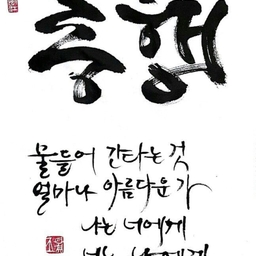 동행
물들어 간다는 것
얼마나 아름다운가
나는 너에게
너는 나에게